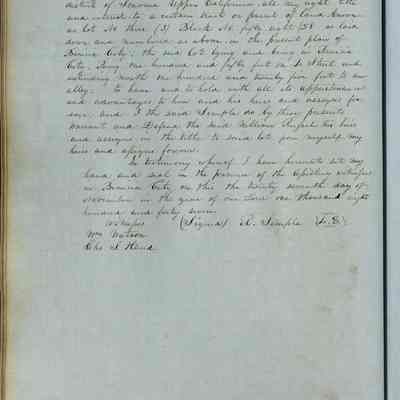 district of Sonoma Upper California, all my right title
and interest to a certain tract or parcel of land known
as Lot No three (3) Block No fifty eight (58) as laid
down and numbered as above in the present plan of
Benicia City; the said lot lying and being in Benicia
City. Being one hundred and fifty feet on Street and
extending North one hundred and twenty five feet to an
alley: to have and to hold with all its appurtenances
and advantages to him and his heirs and assigns for
ever and I the said Semple do by these presents
warrant and Defend the said William his heirs
and assigns in the title to said lot from myself, my
heirs and assigns forever.
In testimony whereof I have hereunto set my
hand and seal in the presence of the witnesses
in Benicia City on this the twenty seventh day of
November in the year of our Lord one thousand eight
hundred and forty seven.
Witnesses (Signed) R. Semple (L.S.)
Wm Watson
Chs. S. Hand